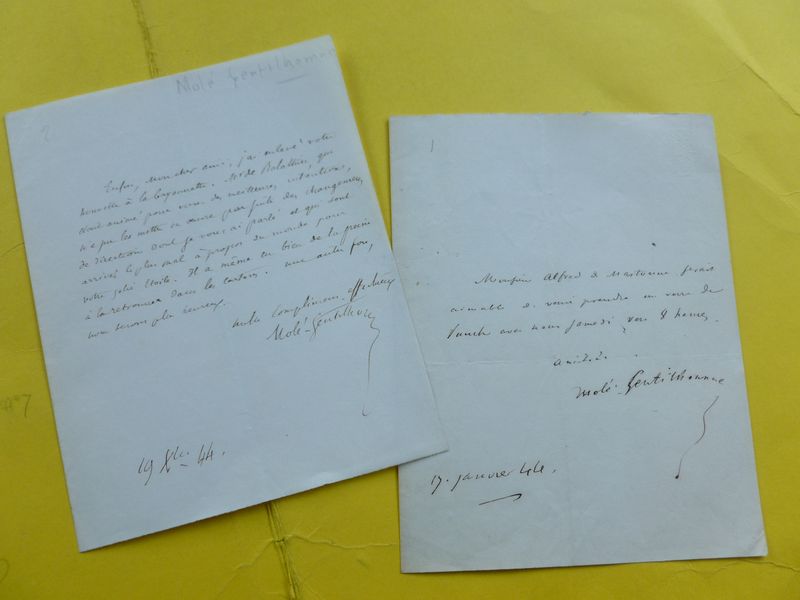 Molé Gentilhomme
2
Enfin, Mon cher ami, j'ai enlevé votre
nouvelle à la bayonnette. Mr de Balathier, qui
était animé pour vous des meilleures intentions,
n'a pu les mettre en œuvre par suite des changements
de direction dont je vous ai parlé et qui sont
arrivés le plus mal à propos du monde pour
votre jolie étoile. Il a même eu bien de la peine
à la retrouver dans les cartons. une autre fois,
nous serons plus heureux.
mille compliments affectueux
Molé-Gentilhomme
19 Xbre 44.
1
Monsieur Alfred de Martonne serait
aimable de venir prendre un verre de
Punch avec nous samedi vers 8 heures.
amitiés.
Molé-Gentilhomme
17. janvier 44.